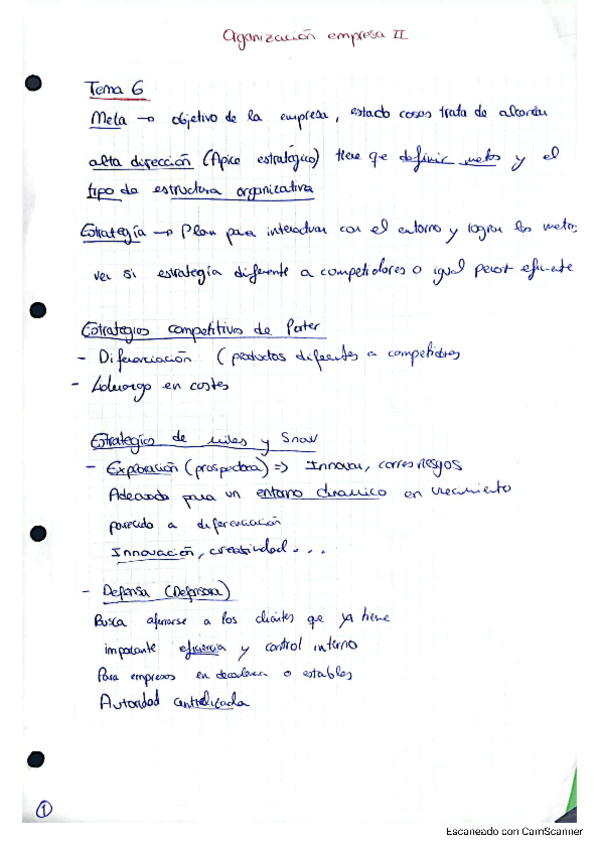 Organización empresa II
Tema 6
Meta → objetivo de la empresa, estado cosas trata de alcanzar
alta dirección (Ápice estratégico) tiene que definir metas y el
tipo de estructura organizativa
Estrategia → Plan para interactuar con el entorno y lograr las metas
ver si estrategia diferente a competidores o igual pero + eficiente
Estrategias competitivas de Porter
- Diferenciación (productos diferentes a competidores
- Liderazgo en costes
Estrategias de Miles y Snow
- Exploración (prospectora) => Innovar, correr riesgos
Adecuado para un entorno dinámico en crecimiento
parecido a diferenciación
Innovación, creatividad...
- Defensa (Defensora)
Busca aferrarse a los clientes que ya tiene
importante eficiencia y control interno
Para empresas en decadencia o estables
Autoridad centralizada
1
Escaneado con CamScanner